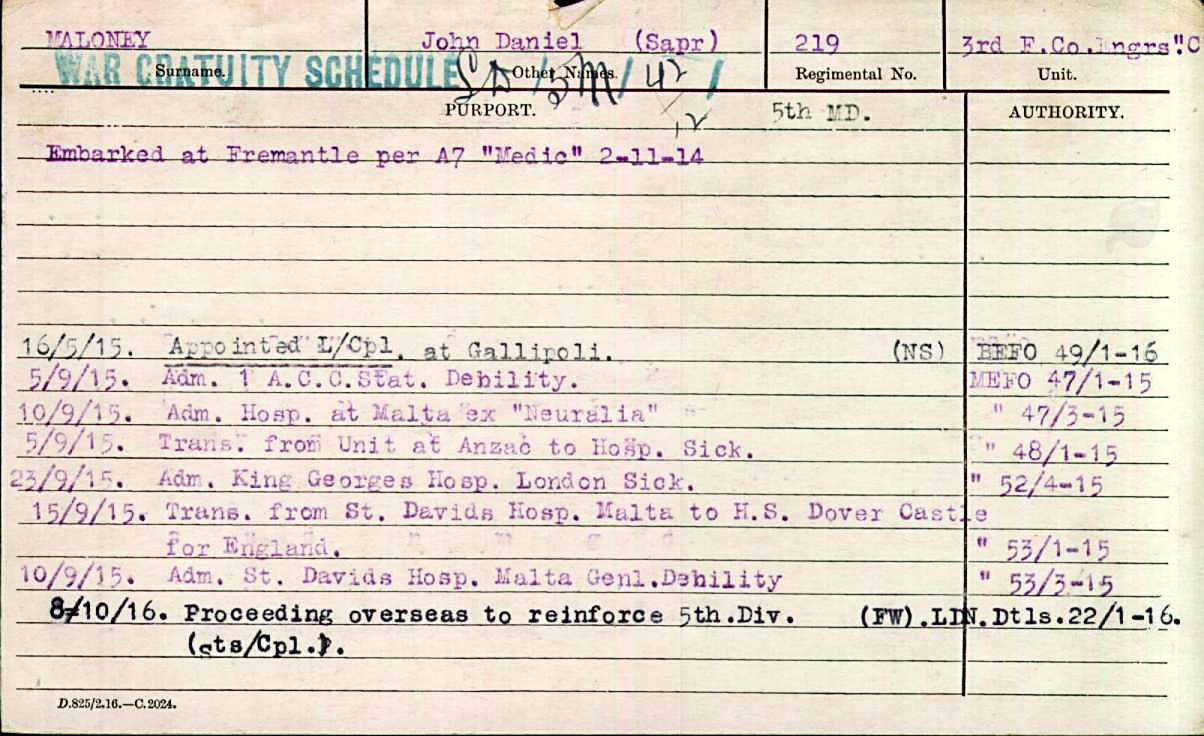 MALONEY John Daniel (Sapr) 219 3rd F.Co.Engrs".C
WAR GRATUITY SCHEDULE
Surname. Other Names. Regimental No. Unit.
PURPORT. 5th MD. AUTHORITY.
Embarked at Fremantle per A7 "Medic" 2-11-14
16/5/15. Appointed L/Cpl. at Gallipoli. (NS) BEFO 49/1-16
5/9/15. Adm. 1 A.C.C.Stat. Debility. MEFO 47/1-15
10/9/15. Adm. Hosp. at Malta ex "Neuralia" " 47/3-15
5/9/15. Trans. from Unit at Anzac to Hosp. Sick. " 48/1-15
23/9/15. Adm. King Georges Hosp. London Sick. " 52/4-15
15/9/15. Trans. from St. Davids Hosp. Malta to H.S. Dover Castle
for England. " 53/1-15
10/9/15. Adm. St. Davids Hosp. Malta Genl.Debility " 53/3-15
8/10/16. Proceeding overseas to reinforce 5th.Div. (FW).LDN.Dtls.22/1-16.
(sts/Cpl.).
D.825/2.16.—C.2024.